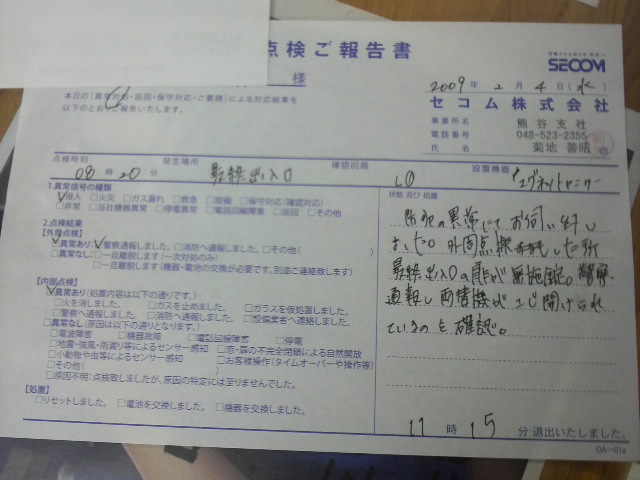 点検ご報告書
様
信頼される安心を、社会へ。
SECOM
2009年 2月 4日(水)
本日の(異常対処・巡回・保守対応・ご要請)による対応結果を
以下のとおりご報告いたします。
セコム株式会社
事業所名 熊谷支社
電話番号 048-523-2355
氏名 菊地 善昭
点検時刻 発生場所 確認回路 設置機器
08時20分 最終出入口 L0 マグネットセンサー
1.異常信号の種類
☑侵入 □火災 □ガス漏れ □救急 □設備 □保守対応(確認対応)
□非常 □当社機器異常 □停電異常 □電話回線障害 □巡回 □その他
2.点検結果
【外周点検】
☑異常あり:☑警察通報しました。□消防へ通報しました。□その他( )
□異常なし:□一旦離脱します(一次対処のみ)
□一旦離脱します(機器・電池の交換が必要です。別途ご連絡致します)
【内部点検】
☑異常あり(処置内容は以下の通りです。)
□火を消しました。 □ガスを止めました。 □ガラスを仮処置しました。
□警察へ通報しました。 □消防へ通報しました。 □設備業者へ連絡しました。
□異常なし(原因は以下の通りとなります。)
□電波障害 □機器故障 □電話回線障害 □停電
□地震・強風・雨漏り等によるセンサー感知 □窓・扉の不完全閉鎖による自然開放
□小動物や虫等によるセンサー感知 □お客様操作(タイムオーバーや操作等)
□その他( )
□原因不明:点検致しましたが、原因の特定には至りませんでした。
【処置】
□リセットしました。 □電池を交換しました。 □機器を交換しました。
状態 及び 処置
防犯の異常にてお伺い致し
ました。外周点検 した所
最終出入口の扉が 警察
通報し両替機が こじ開けられ
ているのを確認。
11時15分 退出いたしました。
OA-01a